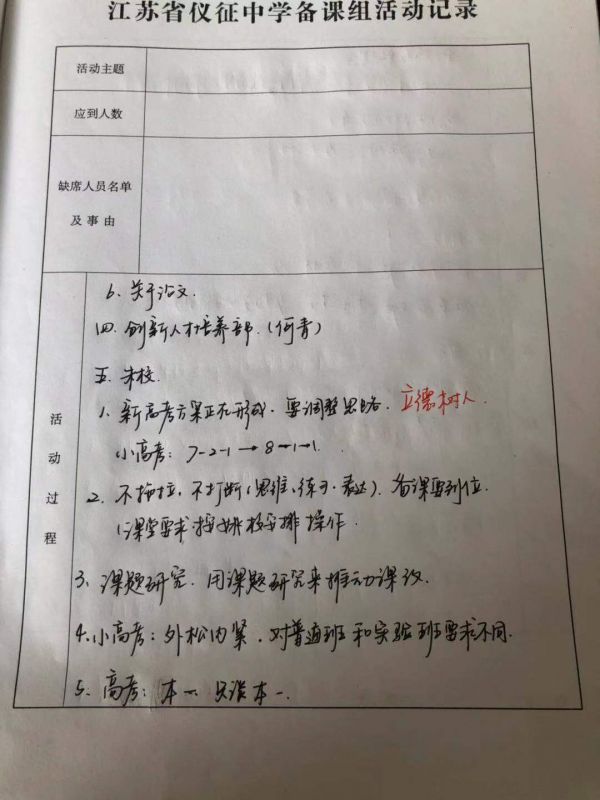 江苏省仪征中学备课组活动记录
活动主题
应到人数
缺席人员名单
及事由
活动过程
6、关于论文.
四、创新人才培养部.(何青)
五、朱校.
1、新高考方案正在形成.要调整思路. 立德树人.
小高考: 7-2-1→8-1-1.
2、不拖拉,不打断(思维、练习、表达).备课要到位.
(课堂要求按姚校安排操作.
3、课题研究.用课题研究来推动课改.
4、小高考:外松内紧.对普通班和实验班要求不同.
5、高考:本一.只谈本一.